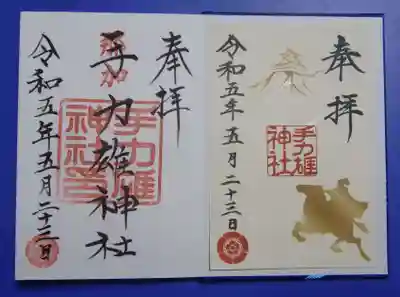 奉拝
手力雄
神社
令和五年五月二十三日
奉拝
手力雄神社
手力雄
神社印
令和五年五月二十三日